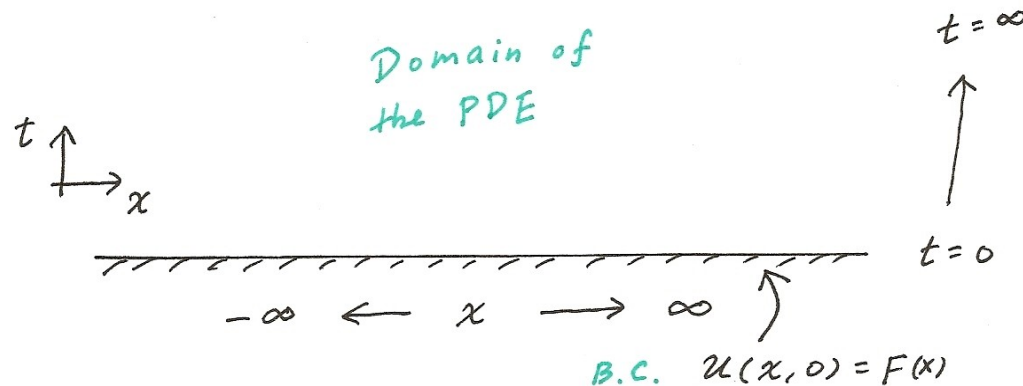 t = ∞
Domain of
the PDE
t
x
t = 0
-∞ ← x → ∞
B.C. u(x, 0) = F(x)